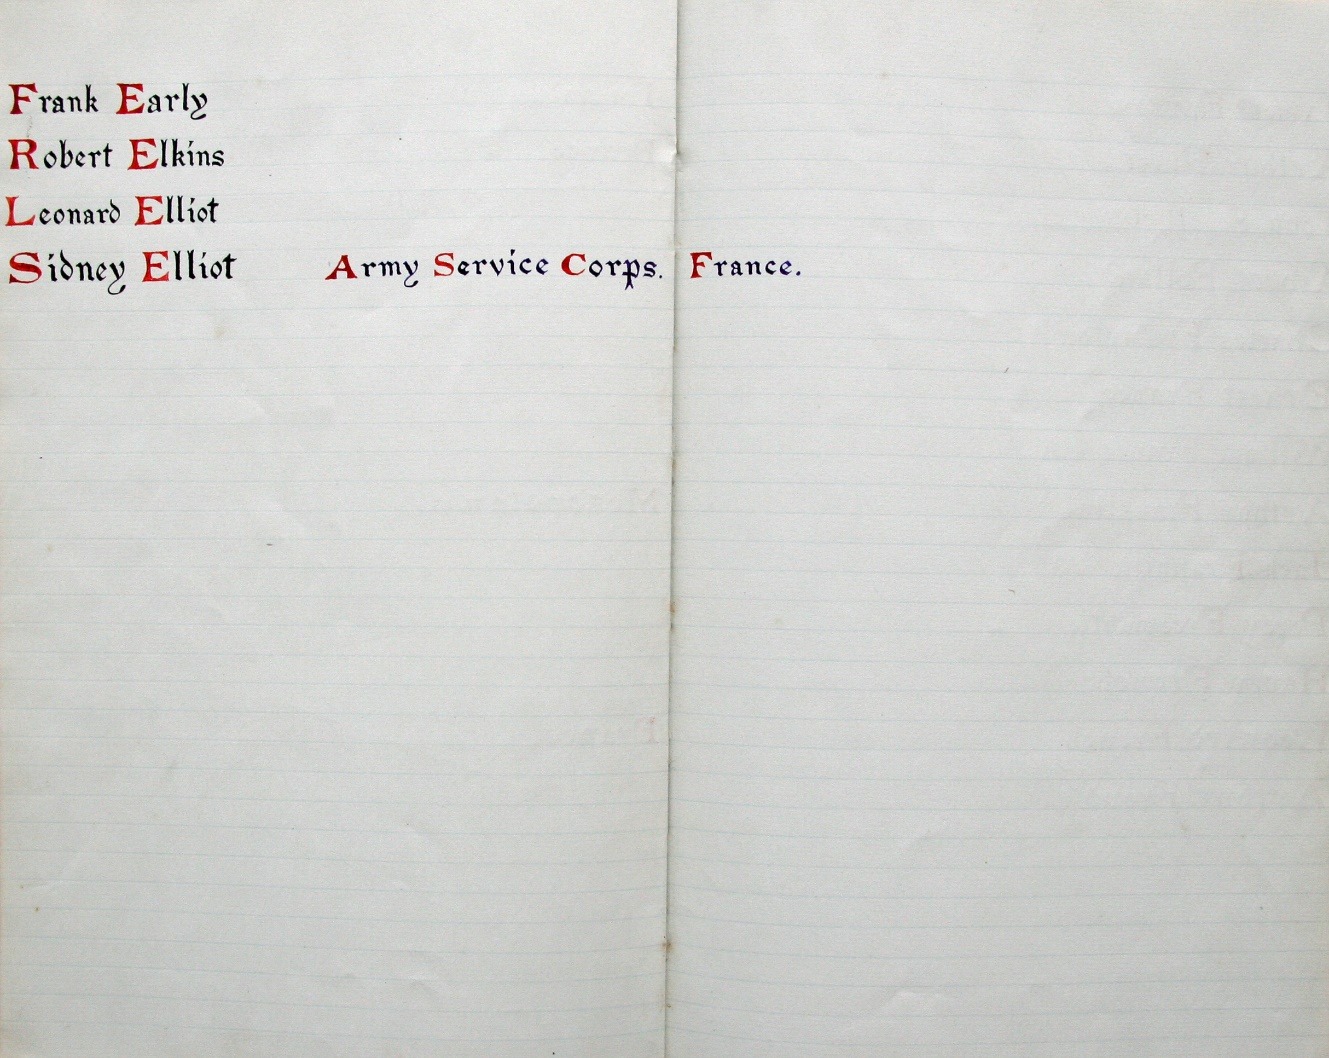 Frank Early
Robert Elkins
Leonard Elliot
Sidney Elliot Army Service Corps. France.